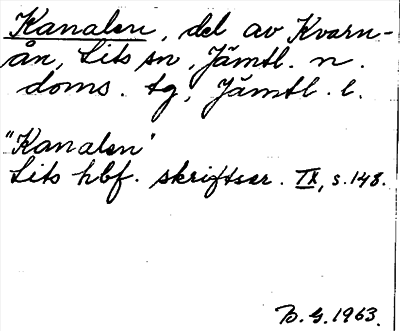 Kanalen, del av Kvarn-
ån, Lits sn, Jämtl. n.
doms. tg, Jämtl. l.
"Kanalen"
Lits hbf. skriftser. IX, s. 148.
B. G. 1963.